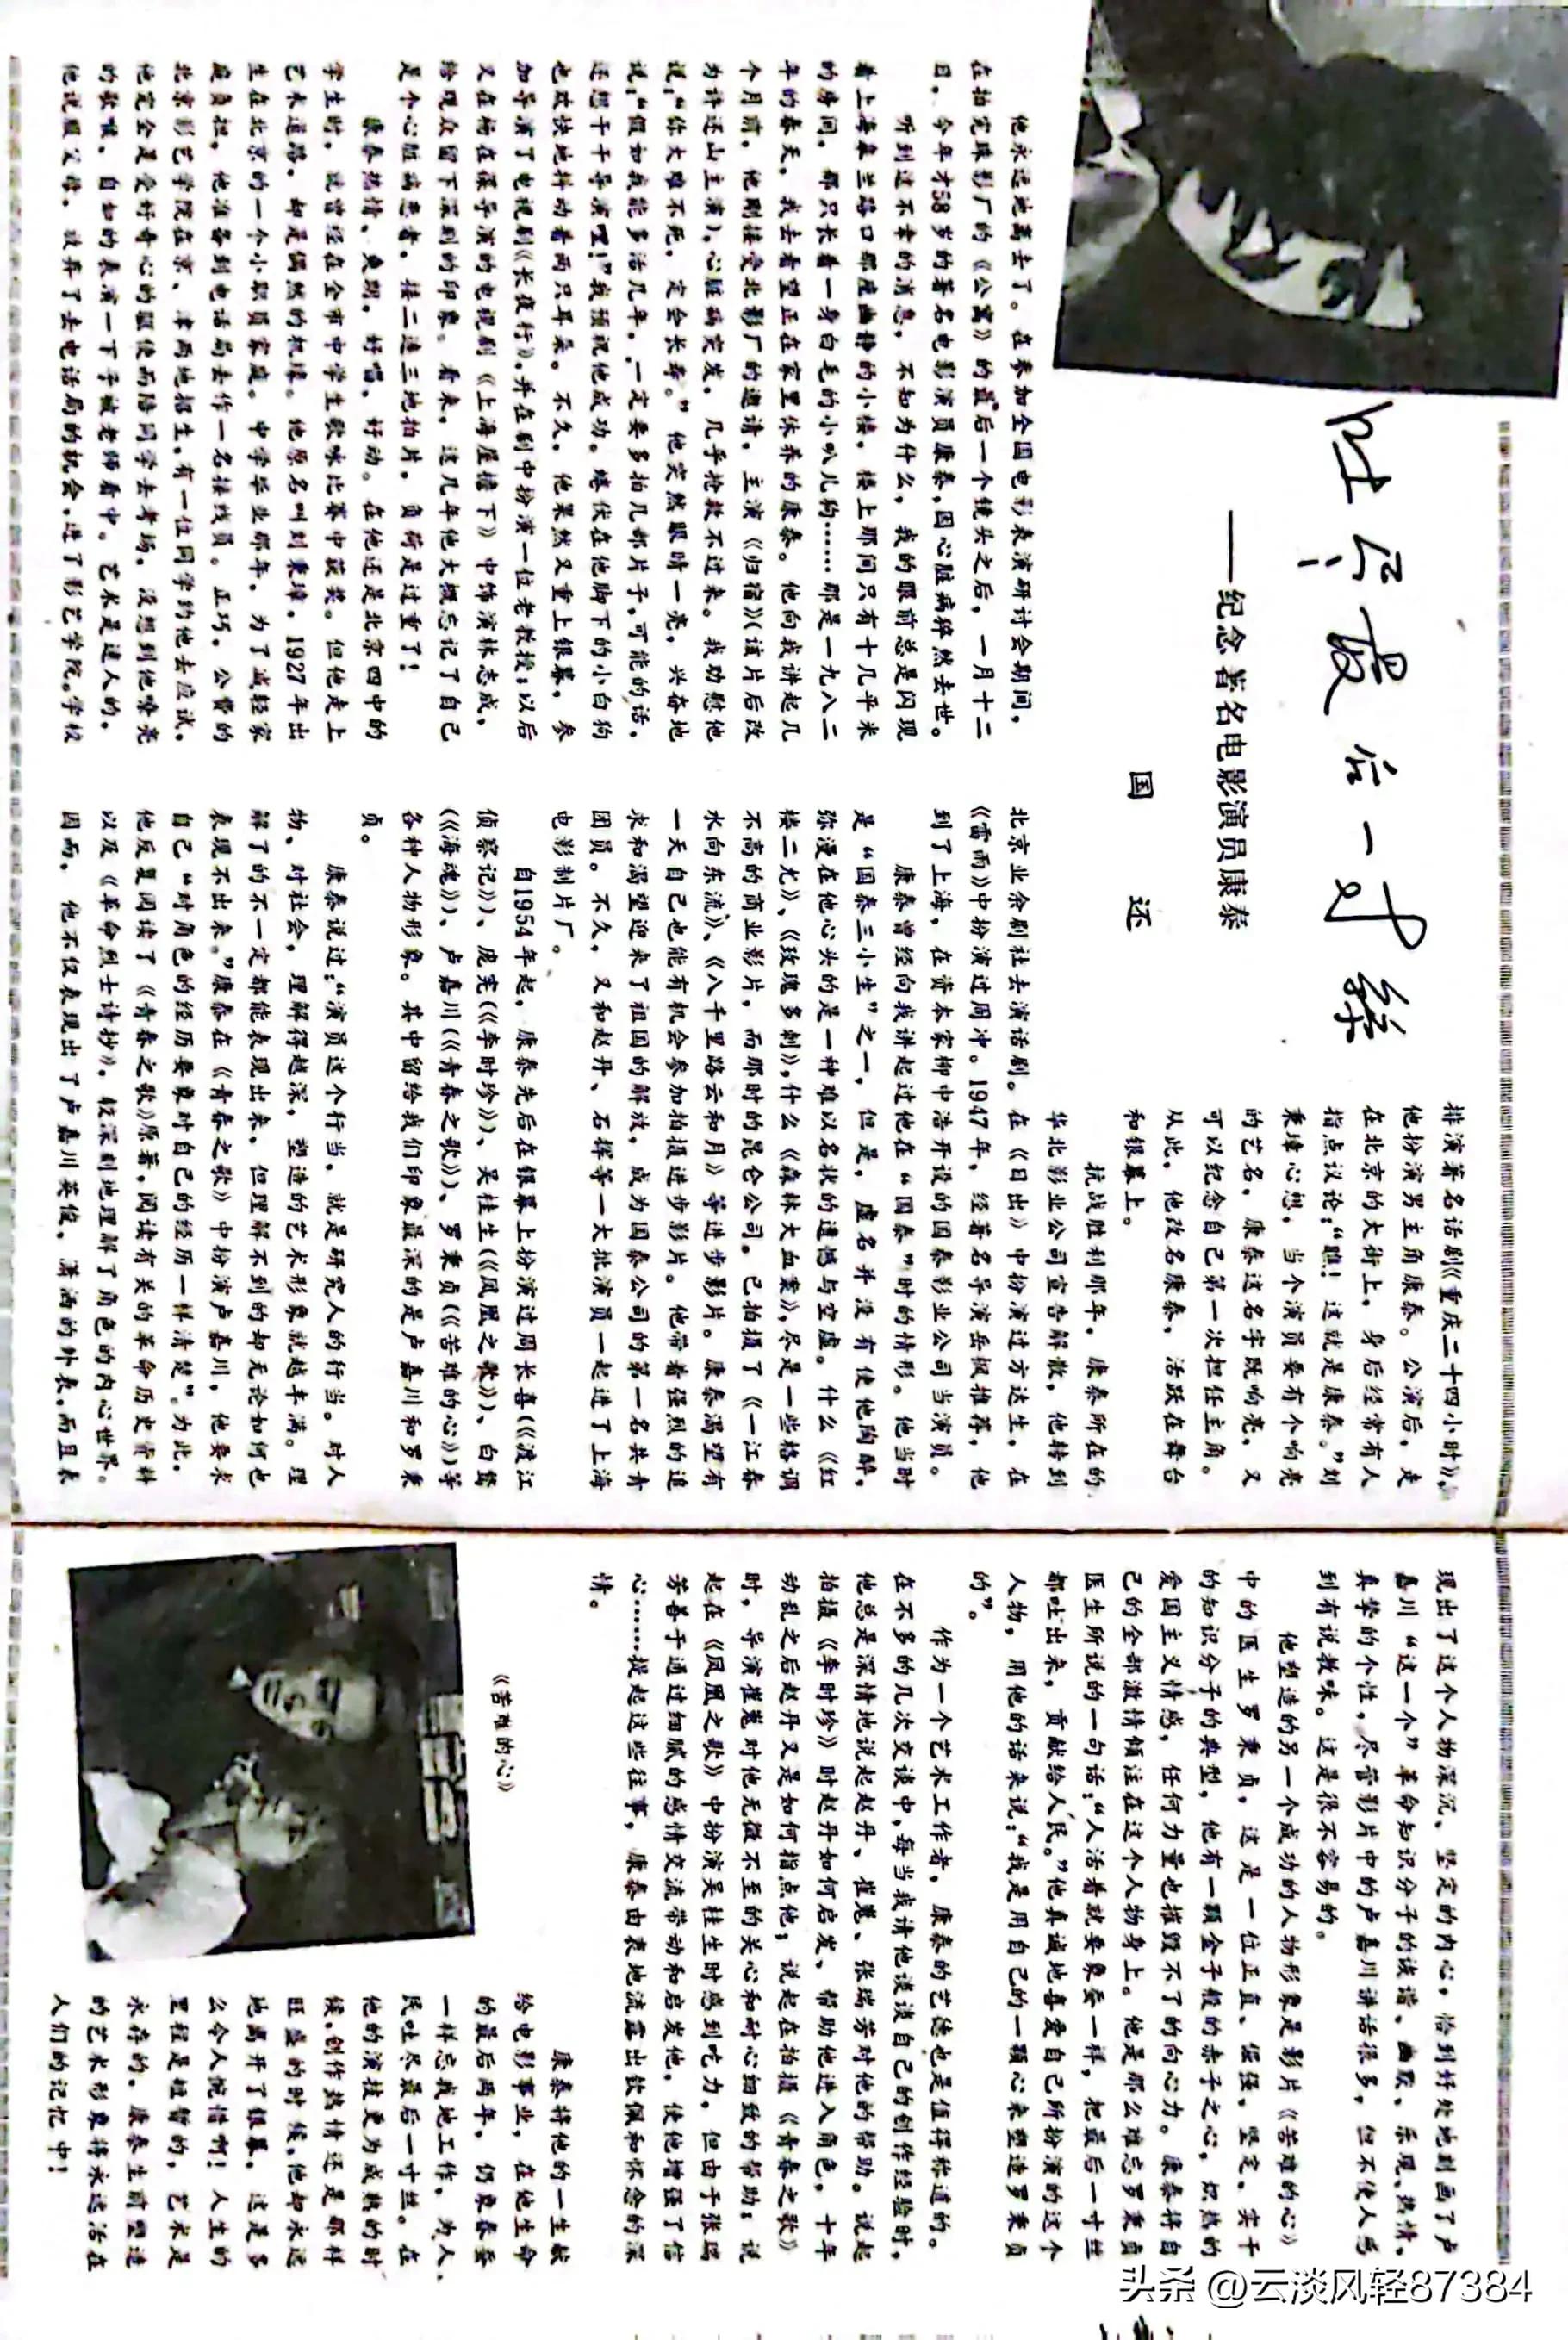 吐尽最后一寸丝
——纪念著名电影演员康泰
国 还
他永远地离去了。在参加全国电影表演研讨会期间，
在拍完珠影厂的《公寓》的最后一个镜头之后，一月十二
日，今年才58岁的著名电影演员康泰，因心脏病猝然去世。
听到这不幸的消息，不知为什么，我的眼前总是闪现
着上海皋兰路口那座幽静的小楼，楼上那间只有十几平米
的房间，那只长着一身白毛的小叭儿狗……那是一九八二
年的春天，我去看望正在家里休养的康泰。他向我讲起几
个月前，他刚接受北影厂的邀请，主演《归宿》（该片后改
为许还山主演），心脏病突发，几乎抢救不过来。我劝慰他
说：“你大难不死，定会长寿。”他突然眼睛一亮，兴奋地
说：“假如我能多活几年，一定要多拍几部片子，可能的话，
还想干干导演哩！”我预祝他成功。蜷伏在他脚下的小白狗
也欢快地抖动着两只耳朵。不久，他果然又重上银幕，参
加导演了电视剧《长夜行》，并在剧中扮演一位老教授；以后
又在杨在葆导演的电视剧《上海屋檐下》中饰演林志成，
给观众留下深刻的印象。看来，这几年他大概忘记了自己
是个心脏病患者，接二连三地拍片，负荷是过重了！
康泰热情、爽朗，好唱，好动。在他还是北京四中的
学生时，就曾经在全市中学生歌咏比赛中获奖。但他走上
艺术道路，却是偶然的机缘。他原名叫刘秉璋，1927年出
生在北京的一个小职员家庭。中学毕业那年，为了减轻家
庭负担，他准备到电话局去作一名接线员。正巧，公费的
北京影艺学院在京、津两地招生，有一位同学约他去应试。
他完全是受好奇心的驱使而陪同学去考场，没想到他嘹亮
的歌喉、自如的表演一下子被老师看中。艺术是迷人的，
他说服父母，放弃了去电话局的机会，进了影艺学院。学校
排演著名话剧《重庆二十四小时》，
他扮演男主角康泰。公演后，走
在北京的大街上，身后经常有人
指点议论：“瞧！这就是康泰。”刘
秉璋心想，当个演员要有个响亮
的艺名，康泰这名字既响亮，又
可以纪念自己第一次担任主角。
从此，他改名康泰，活跃在舞台
和银幕上。
抗战胜利那年，康泰所在的
华北影业公司宣告解散，他转到
北京业余剧社去演话剧。在《日出》中扮演过方达生，在
《雷雨》中扮演过周冲。1947年，经著名导演岳枫推荐，他
到了上海，在资本家柳中浩开设的国泰影业公司当演员。
康泰曾经向我讲起过他在“国泰”时的情形。他当时
是“国泰三小生”之一，但是，虚名并没有使他陶醉，
弥漫在他心头的是一种难以名状的遗憾与空虚。什么《红
楼二尤》、《玫瑰多刺》，什么《森林大血案》，尽是一些格调
不高的商业影片，而那时的昆仑公司，已拍摄了《一江春
水向东流》、《八千里路云和月》等进步影片。康泰渴望有
一天自己也能有机会参加拍摄进步影片。他带着强烈的追
求和渴望迎来了祖国的解放，成为国泰公司的第一名共青
团员。不久，又和赵丹、石挥等一大批演员一起进了上海
电影制片厂。
自1954年起，康泰先后在银幕上扮演过周长喜（《渡江
侦察记》）、庞宪（《李时珍》）、吴桂生（《凤凰之歌》）、白
（《海魂》）、卢嘉川（《青春之歌》）、罗秉贞（《苦难的心》）等
各种人物形象。其中留给我们印象最深的是卢嘉川和罗秉
贞。
康泰说过：“演员这个行当，就是研究人的行当。对人
物、对社会，理解得越深，塑造的艺术形象就越丰满。理
解了的不一定都能表现出来，但理解不到的却无论如何也
表现不出来。”康泰在《青春之歌》中扮演卢嘉川，他要求
自己“对角色的经历要象对自己的经历一样清楚”。为此，
他反复阅读了《青春之歌》原著，阅读有关的革命历史资料
以及《革命烈士诗抄》，较深刻地理解了角色的内心世界。
因而，他不仅表现出了卢嘉川英俊、潇洒的外表，而且表
现出了这个人物深沉、坚定的内心，恰到好处地刻画了卢
嘉川“这一个”革命知识分子的诙谐、幽默、乐观、热情、
真挚的个性，尽管影片中的卢嘉川讲话很多，但不使人感
到有说教味。这是很不容易的。
他塑造的另一个成功的人物形象是影片《苦难的心》
中的医生罗秉贞，这是一位正直、倔强、坚定、实干
的知识分子的典型，他有一颗金子般的赤子之心，炽热的
爱国主义情感，任何力量也摧毁不了的向心力。康泰将自
己的全部激情倾注在这个人物身上。他是那么难忘罗秉贞
医生所说的一句话：“人活着就要象蚕一样，把最后一寸丝
都吐出来，贡献给人民。”他真诚地喜爱自己所扮演的这个
人物，用他的话来说：“我是用自己的一颗心来塑造罗秉贞
的”。
作为一个艺术工作者，康泰的艺德也是值得称道的。
在不多的几次交谈中，每当我请他谈谈自己的创作经验时，
他总是深情地说起赵丹、崔嵬、张瑞芳对他的帮助。说起
拍摄《李时珍》时赵丹如何启发、帮助他进入角色，十年
动乱之后赵丹又是如何指点他；说起在拍摄《青春之歌》
时，导演崔嵬对他无微不至的关心和耐心细致的帮助；说
起在《凤凰之歌》中扮演吴桂生时感到吃力，但由于张瑞
芳善于通过细腻的感情交流带动和启发他，使他增强了信
心……提起这些往事，康泰由衷地流露出钦佩和怀念的深
情。
《苦难的心》
康泰将他的一生献
给电影事业，在他生命
的最后两年，仍象春蚕
一样忘我地工作，为人
民吐尽最后一寸丝。在
他的演技更为成熟的时
候，创作热情还是那样
旺盛的时候，他却永远
地离开了银幕，这是多
么令人惋惜啊！人生的
里程是短暂的，艺术是
永存的，康泰生前塑造
的艺术形象将永远活在
人们的记忆中！
头条 @云淡风轻87384